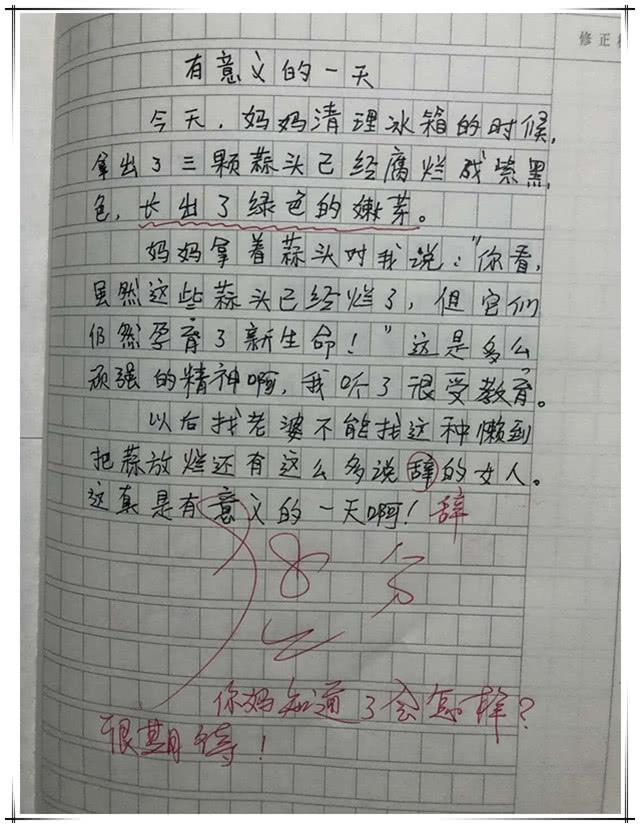 修正
有意义的一天
今天,妈妈清理冰箱的时候,
拿出了三颗蒜头已经腐烂成紫黑
色,长出了绿色的嫩芽。
妈妈拿着蒜头对我说:"你看,
虽然这些蒜头已经烂了,但它们
仍然孕育了新生命!"这是多么
顽强的精神啊,我听了很受教育。
以后找老婆不能找这种懒到
把蒜放烂还有这么多说辞的女人。
这真是有意义的一天啊!辞
8分
你妈知道了会怎样?
很期待!